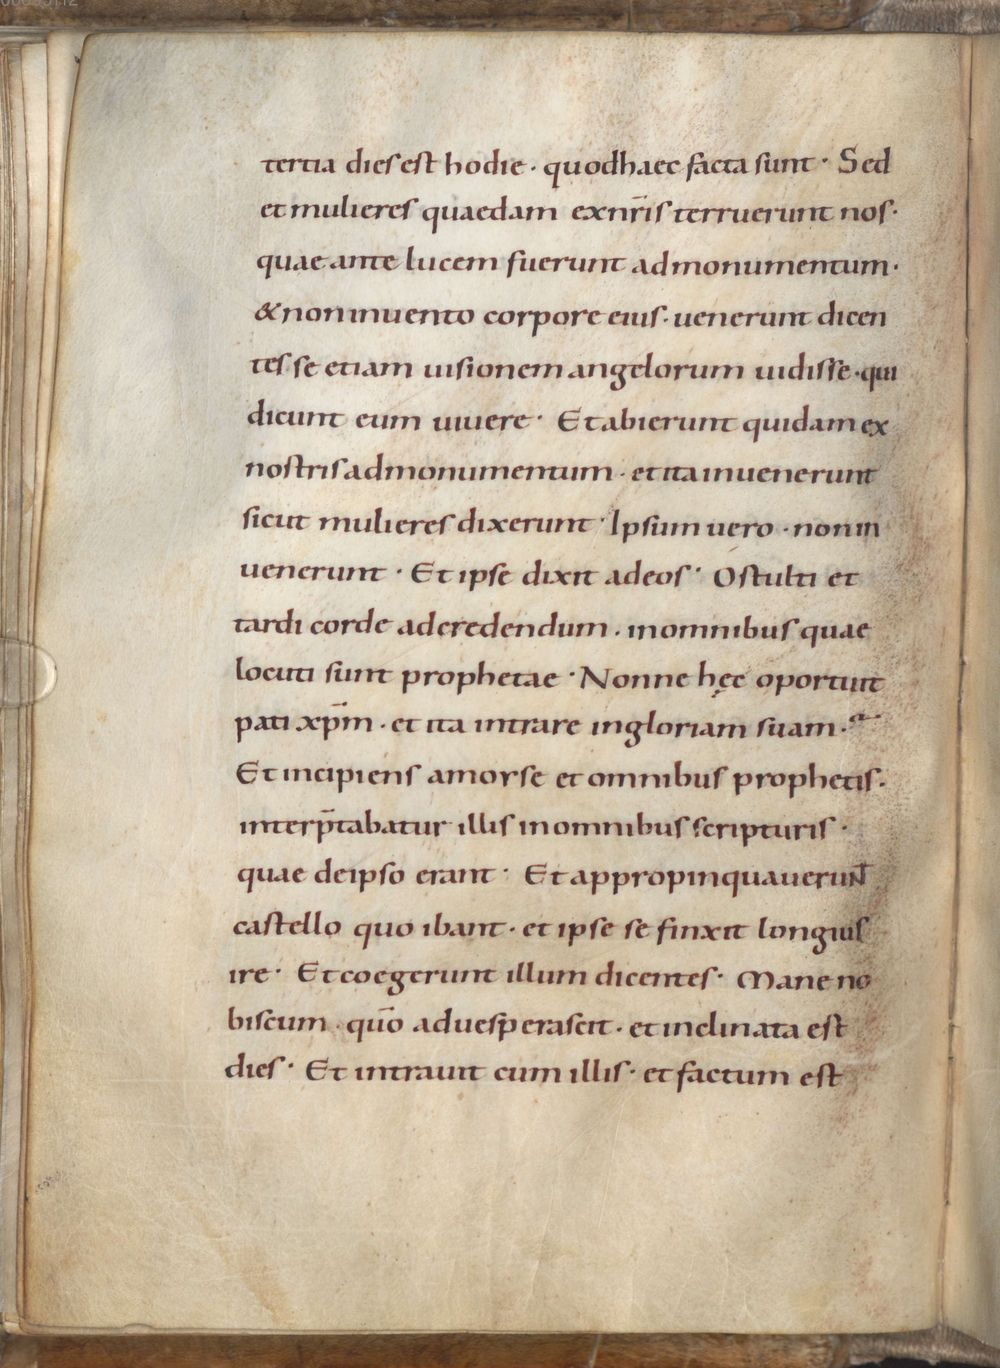 tertia dies est hodie · quod haec facta sunt · Sed
et mulieres quaedam ex nr̄is terruerunt nos ·
quae ante lucem fuerunt ad monumentum ·
& non inuento corpore eius · uenerunt dicen
tes se etiam uisionem angelorum uidisse · qui
dicunt eum uiuere · Et abierunt quidam ex
nostris ad monumentum · et ita inuenerunt
sicut mulieres dixerunt · Ipsum uero · non in
uenerunt · Et ipse dixit ad eos · O stulti et
tardi corde ad credendum · in omnibus quae
locuti sunt prophetae · Nonne hęc oportuit
pati xp̄m · et ita intrare in gloriam suam ·
Et incipiens a moyse et omnibus prophetis ·
interp̄tabatur illis in omnibus scripturis ·
quae de ipso erant · Et appropinquauerunt
castello quo ibant · et ipse se finxit longius
ire · Et coegerunt illum dicentes · Mane no
biscum · quō aduesperascit · et inclinata est
dies · Et intrauit cum illis · et factum est